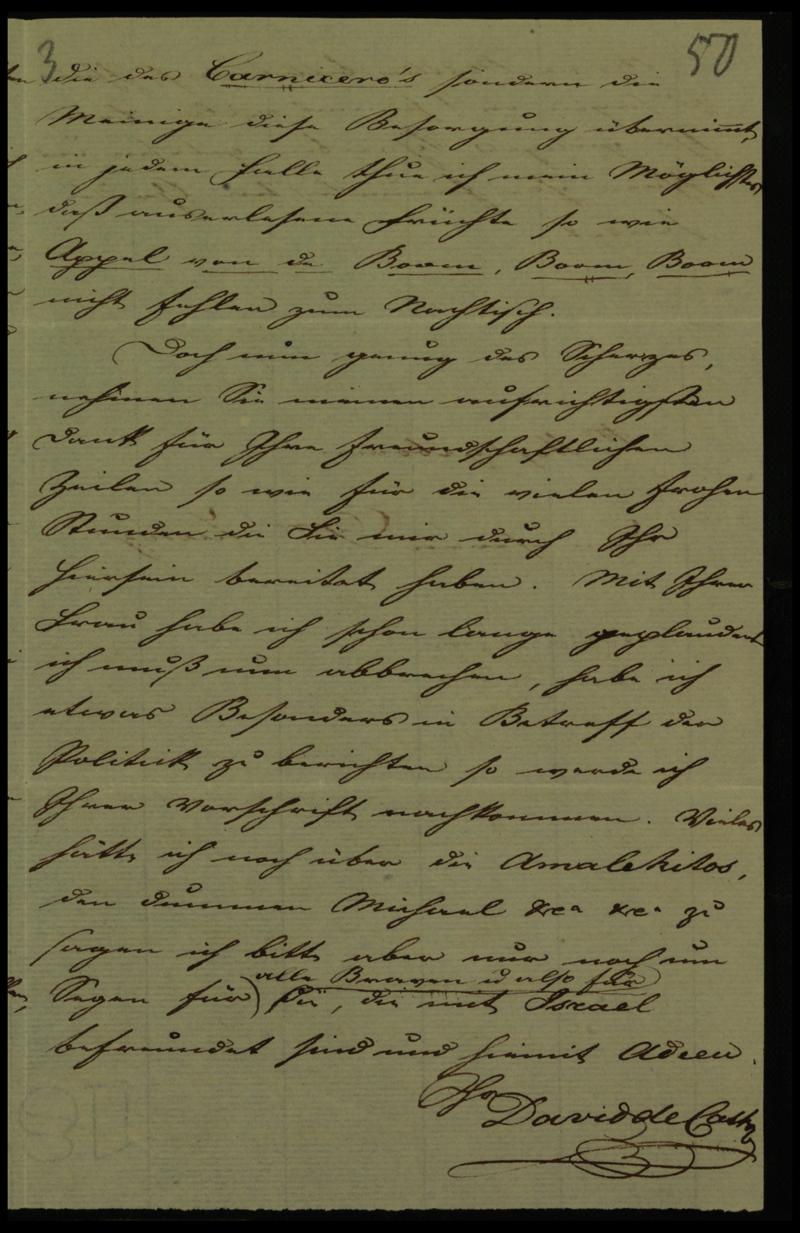 3 50
die des Carnicero's sondern die
Meinige diese Besorgung übernimmt,
in jedem Falle thue ich mein Möglichstes
daß auserlesene Früchte so wie
Appel von de Boom, Boom, Boom
nicht fehlen zum Nachtisch.
Doch nun genug des Scherzes,
nehmen Sie meinen aufrichtigsten
Dank für Ihre freundschaftlichen
Zeilen so wie für die vielen frohen
Stunden die Sie mir durch Ihr
Hiersein bereitet haben. Mit Ihrer
Frau habe ich schon lange geplaudert
ich muß nun abbrechen, habe ich
etwas Besonders in Betreff der
Politick zu berichten so werde ich
Ihrer Vorschrift nachkommen. Vieles
hätte ich noch über die Amalekitos,
den dummen Michael &ca &ca zu
sagen ich bitte aber nur noch um
alle Braven u also für
Segen für Sie, die mit Israel
befreundet sind und hiemit Adieu.
Ihr
David de Castro